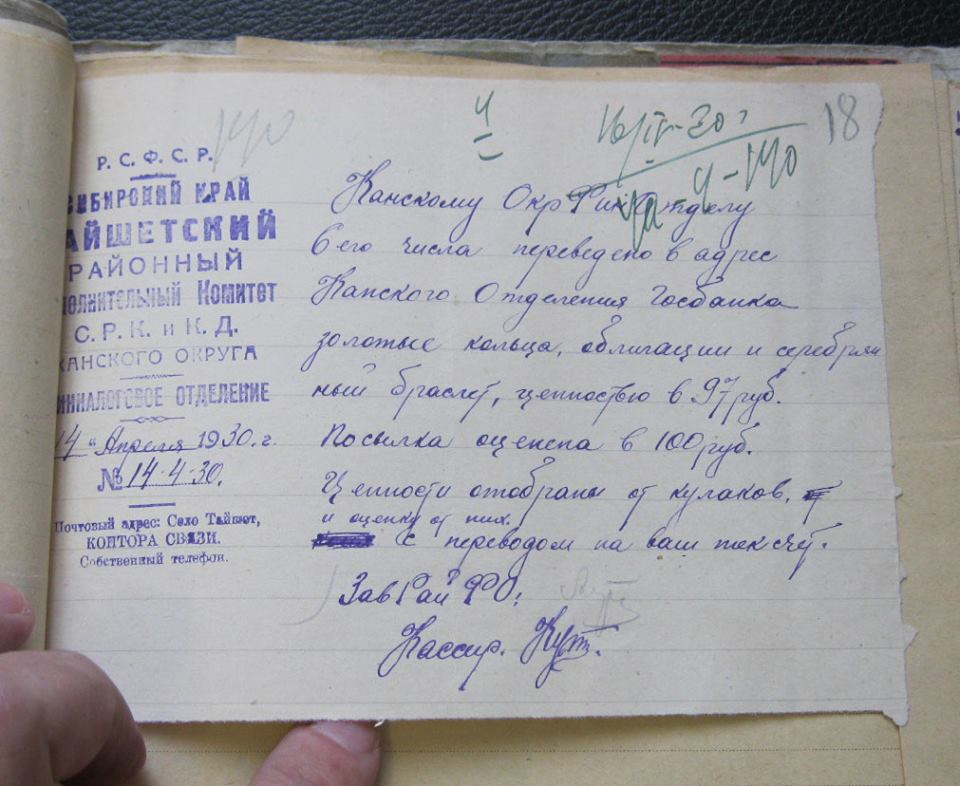 140
4
16/IV-30 г
18
4-140
Р. С. Ф. С. Р.
СИБИРСКИЙ КРАЙ
АЙШЕТСКИЙ
РАЙОННЫЙ
полнительный Комитет
С. Р. К. и К. Д.
КАНСКОГО ОКРУГА
ИННАЛОГОВОЕ ОТДЕЛЕНИЕ
14 " Апреля 1930. г.
№ 14-4-30.
Почтовый адрес: Село Тайшет,
КОНТОРА СВЯЗИ.
Собственный телефон.
Канскому Окр Фин Отделу
6 его числа переведено в адрес
Канского Отделения Госбанка
золотые кольца, облигации и серебрян
ный браслет, ценностью в 97 руб.
Посылка оценена в 100 руб.
Ценности отобраны от кулаков,
и оценку от них.
с переводом на ваш тек счет.
Зав Рай ФО:
Кассир.